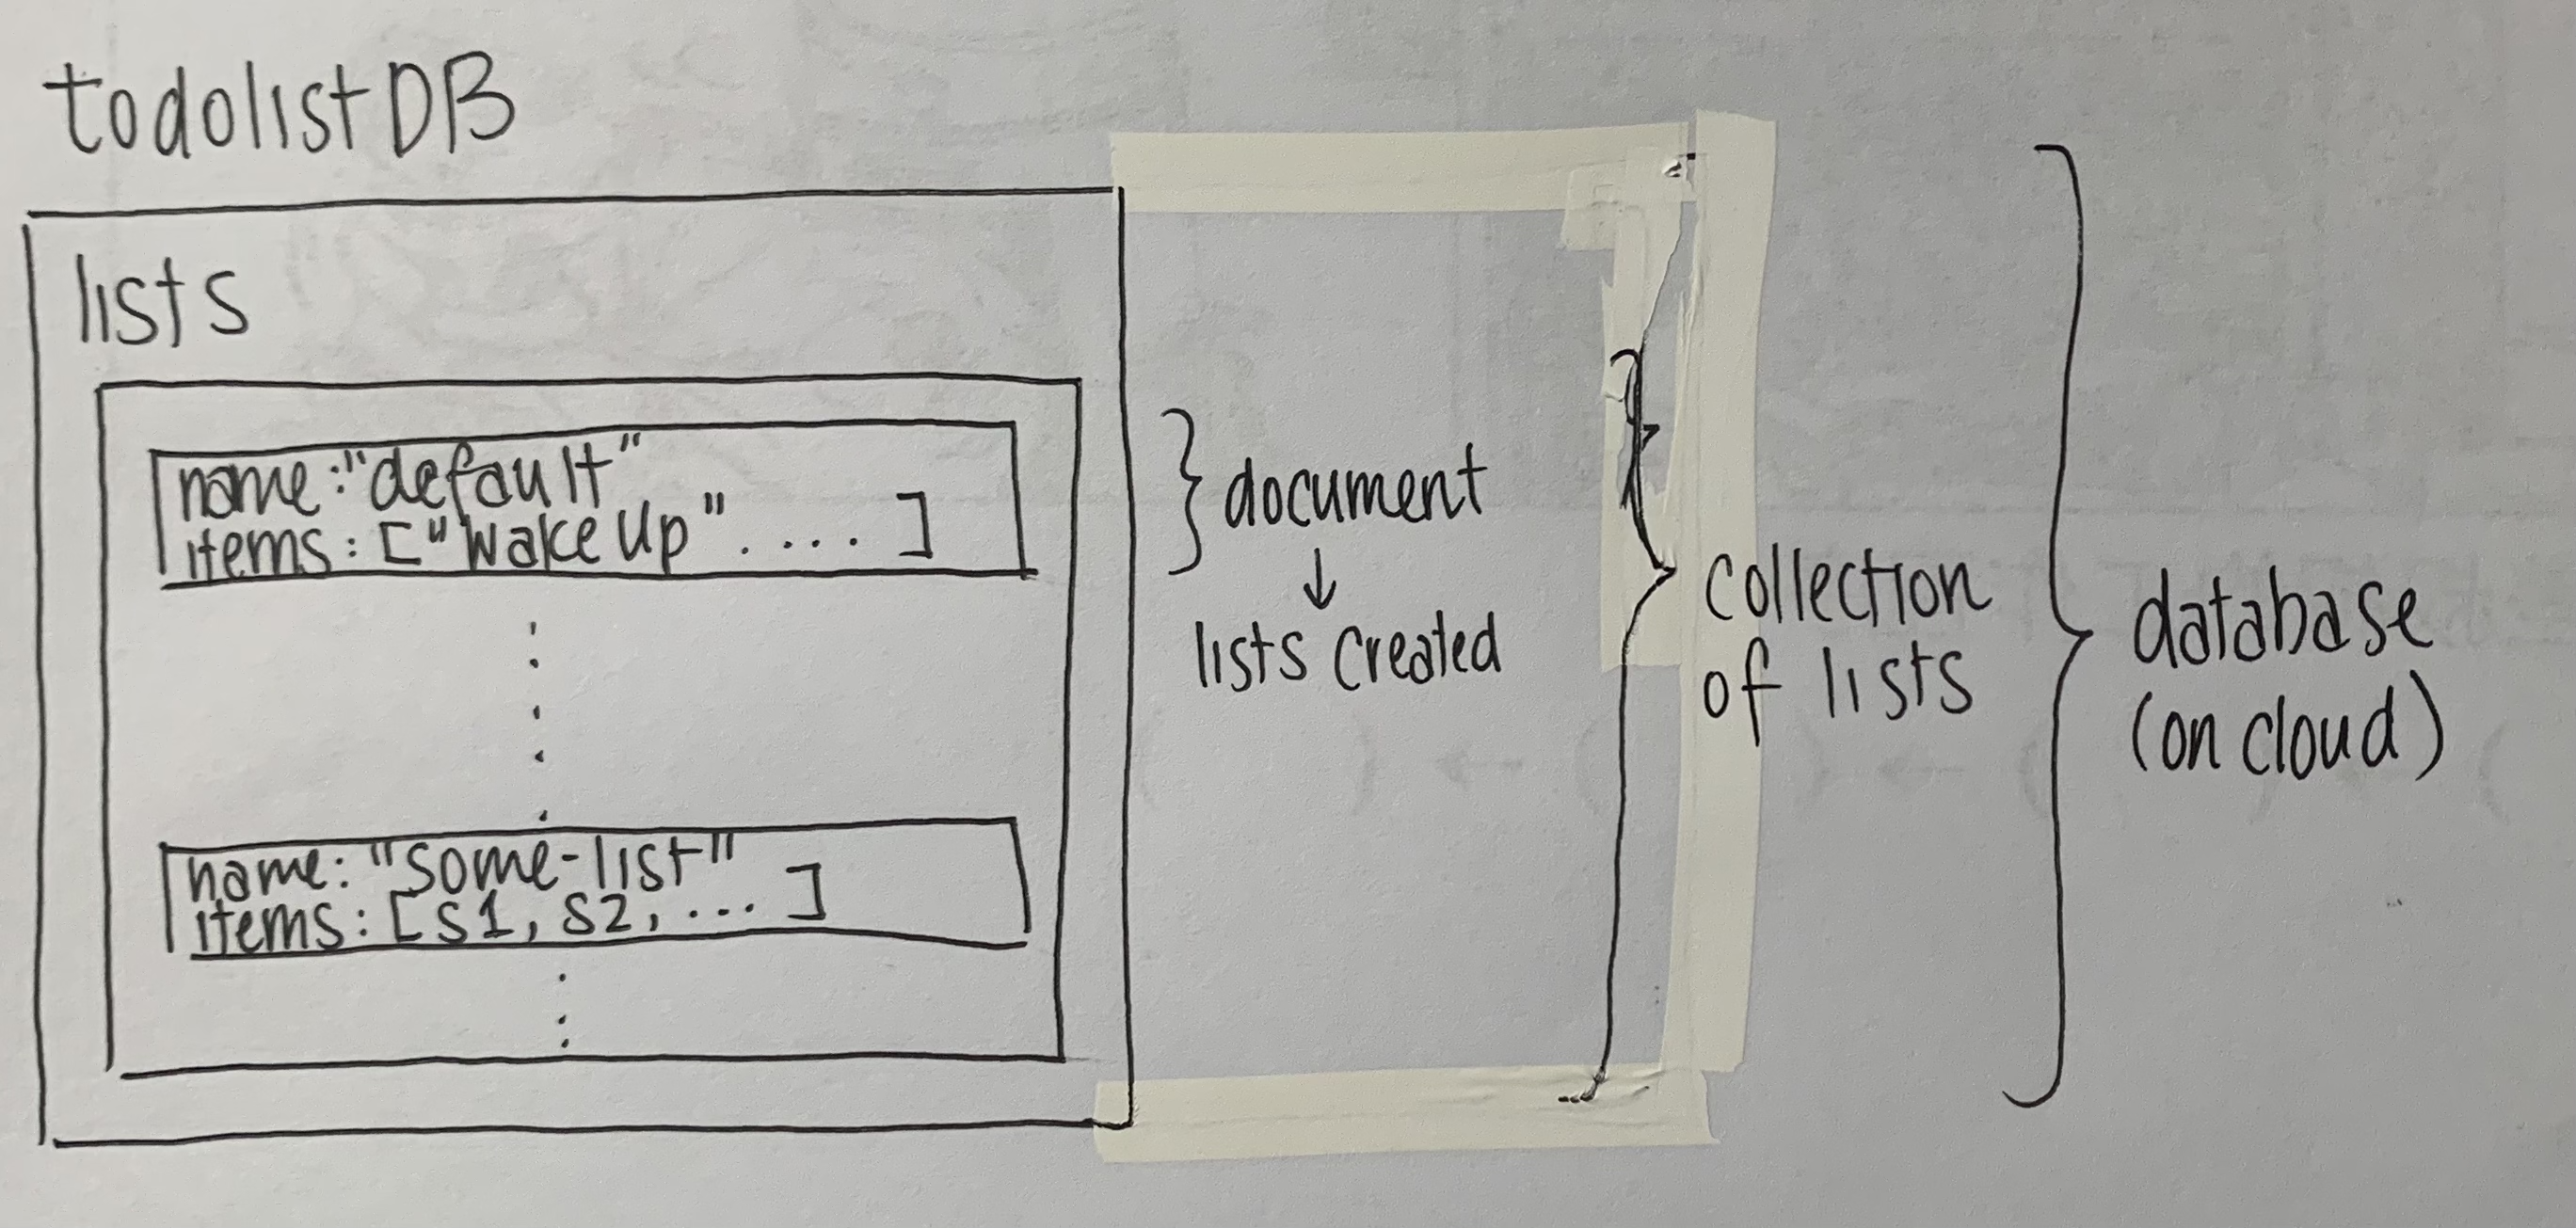 todolistDB
lists
name:"default"
items: ["Wake Up" .... ]
name: "some-list"
items: [S1, S2, ... ]
document
↓
lists created
collection
of lists
database
(on cloud)